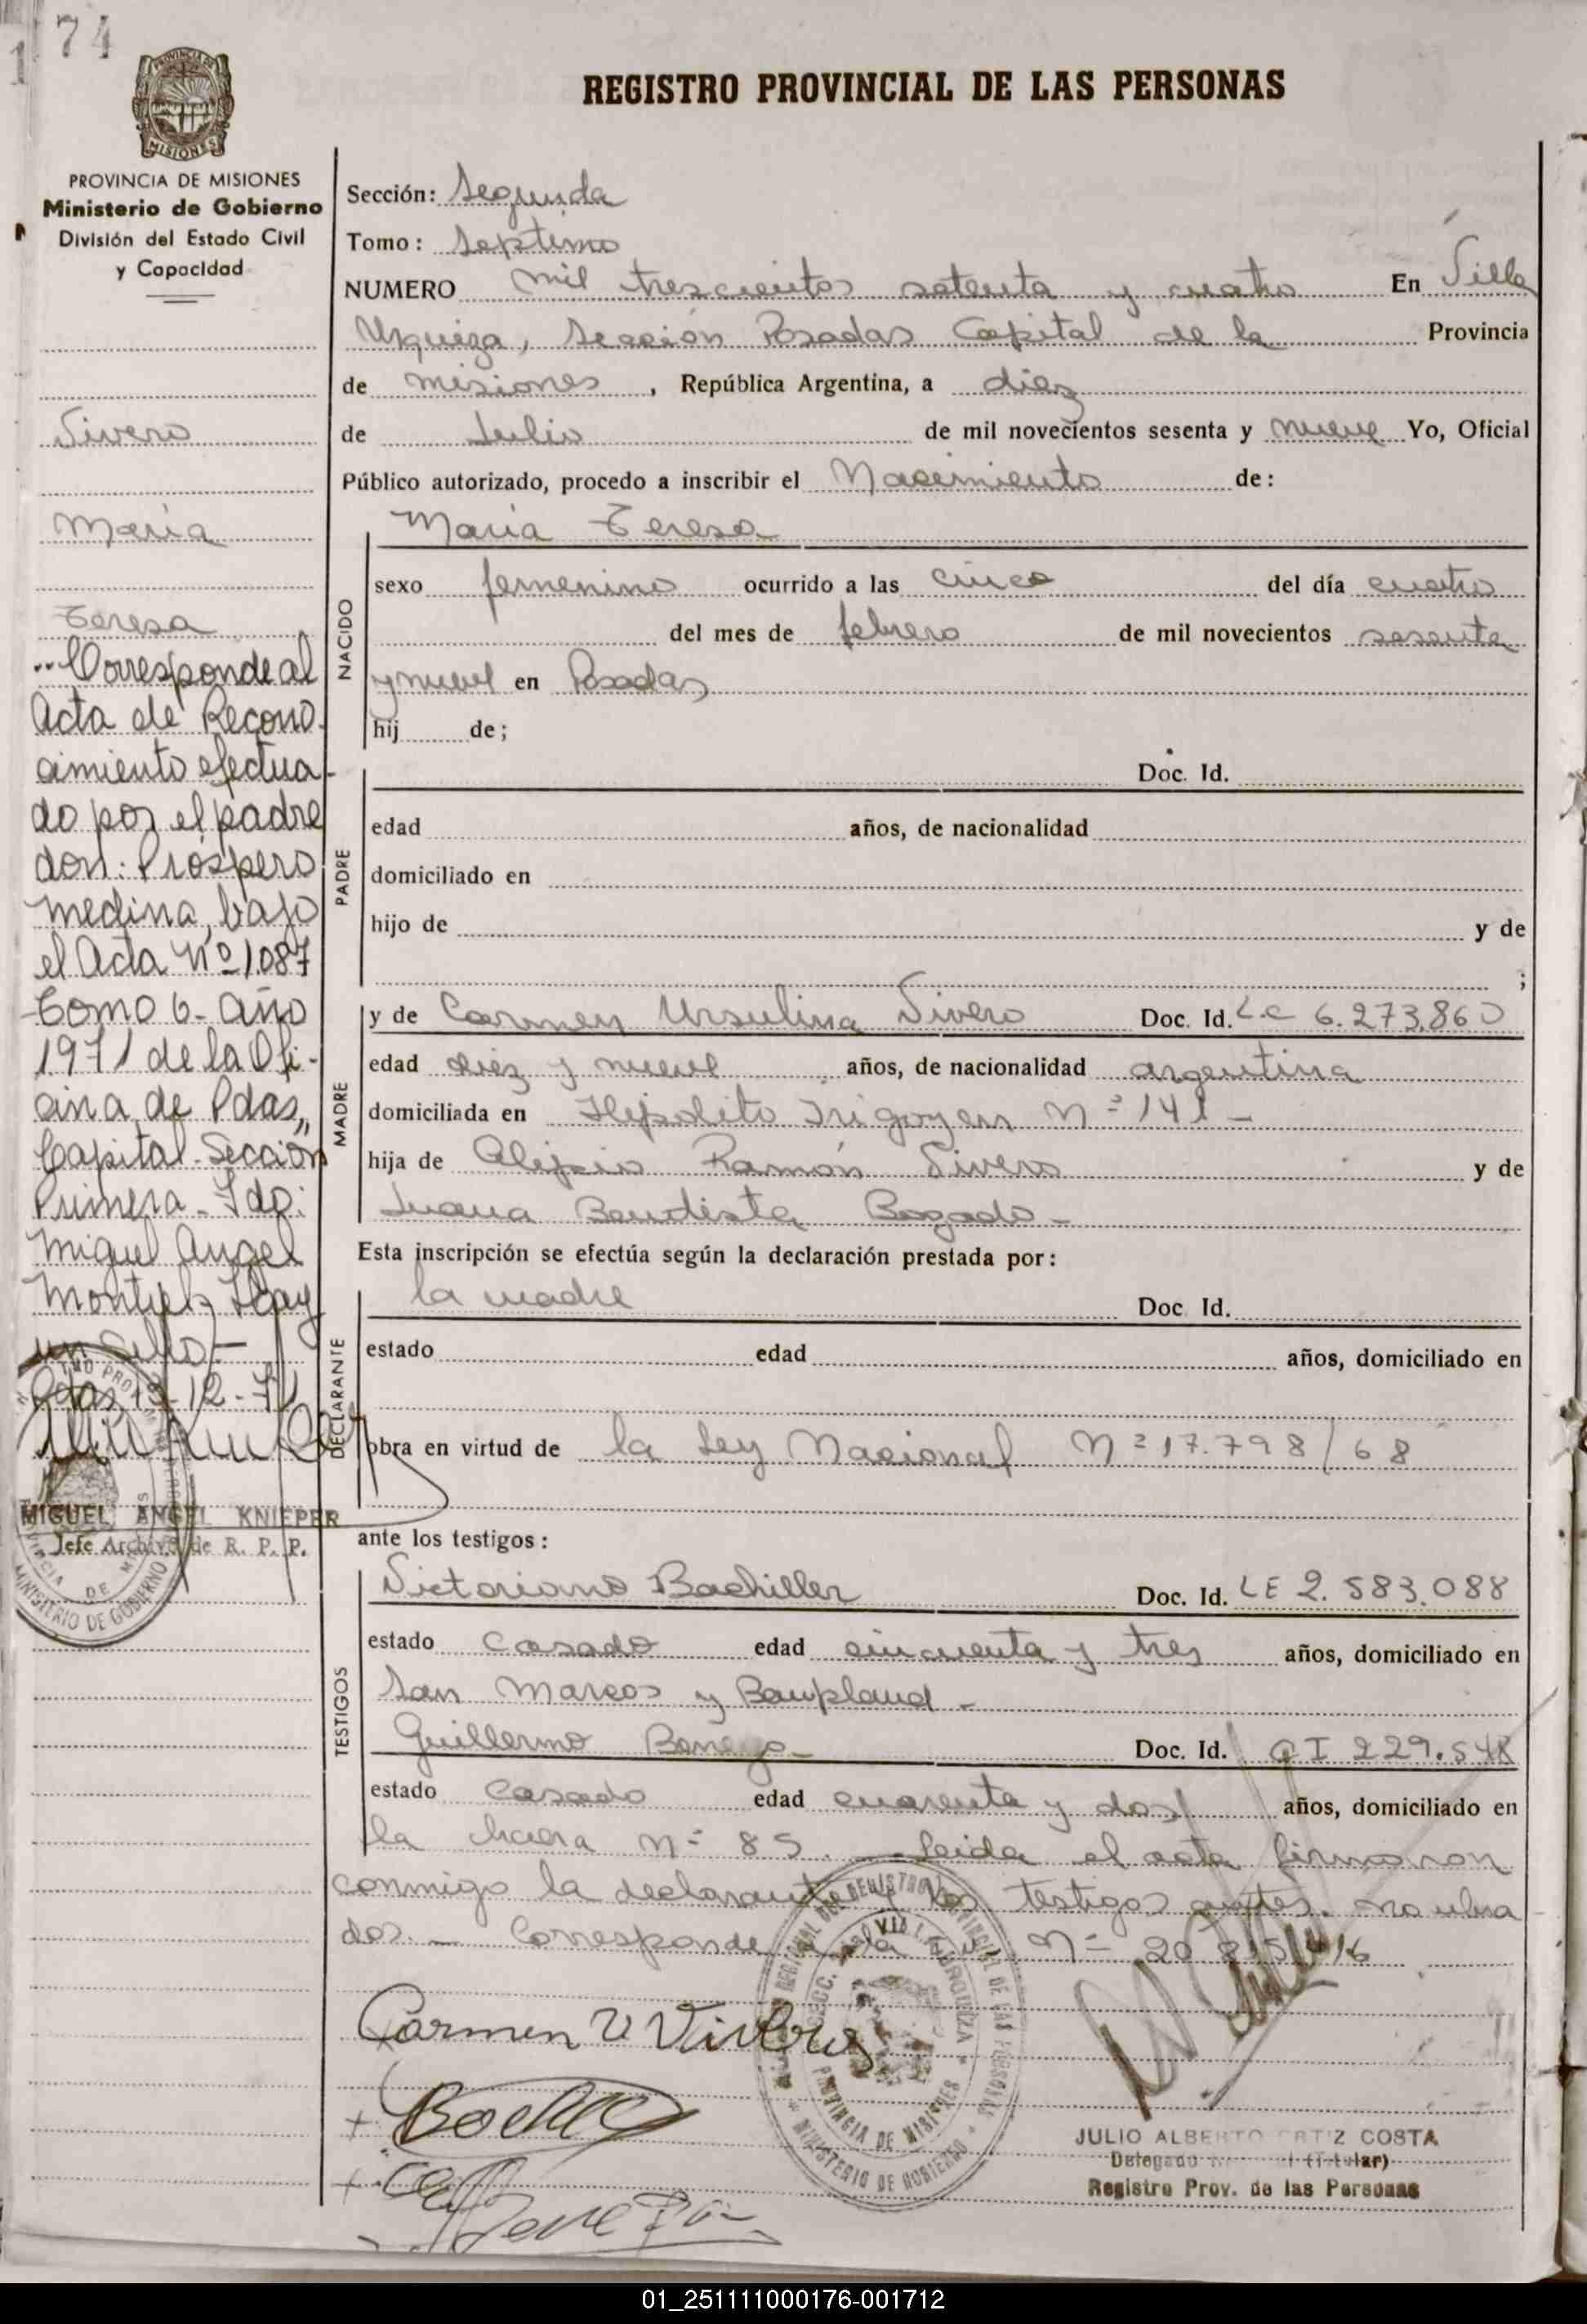 174
PROVINCIA DE MISIONES
Ministerio de Gobierno
División del Estado Civil
y Capacidad
Vivero
María
Teresa
..Corresponde al
Acta de Recono-
cimiento efectua-
do por el padre
don: Próspero
Medina, bajo
el Acta Nº 1.087
Tomo 6- Año
1971 de la Ofi-
cina de Pdas,,
Capital-Sección
Primera- Fdo:
Miguel Angel
Montiel- Hay
un sello.-
Pdas, 13-12-71
MIGUEL ANGEL KNIEPER
Jefe Archivo de R. P. P.
MINISTERIO DE GOBIERNO
REGISTRO PROVINCIAL DE LAS PERSONAS
Sección: Segunda
Tomo: Septimo
NUMERO mil trescientos setenta y cuatro En Villa
Urquiza, Sección Posadas Capital de la Provincia
de misiones, República Argentina, a diez
de Julio de mil novecientos sesenta y nueve Yo, Oficial
Público autorizado, procedo a inscribir el Nacimiento de:
NACIDO
María Teresa
sexo femenino ocurrido a las cinco del día cuatro
del mes de febrero de mil novecientos sesenta
y nueve en Posadas
hij de;
PADRE
Doc. Id.
edad años, de nacionalidad
domiciliado en
hijo de y de
;
MADRE
y de Carmen Ursulina Vivero Doc. Id. L.C 6.273.860
edad diez y nueve años, de nacionalidad argentina
domiciliada en Hipolito Irigoyen Nº 141 -
hija de Alipio Ramón Vivero y de
Juana Bautista Bogado -
Esta inscripción se efectúa según la declaración prestada por:
DECLARANTE
la madre Doc. Id.
estado edad años, domiciliado en
obra en virtud de la Ley Nacional Nº 17.798/68
ante los testigos:
TESTIGOS
Victoriano Bachiller Doc. Id. LE 2.583.088
estado casado edad cincuenta y tres años, domiciliado en
San Marcos y Baupland -
Guillermo Doc. Id. CI 229.548
estado casado edad cuarenta y dos años, domiciliado en
la chacra Nº 85. - Leida el acta firmaron
conmigo la declarante y los testigos antes. nombra
dos. - Corresponde a la Nº 20
Carmen U Vivero
MINISTERIO DE GOBIERNO
PROVINCIA DE MISIONES
JULIO ALBERTO ORTIZ COSTA
Delegado (Titular)
Registro Prov. de las Personas
01_251111000176-001712